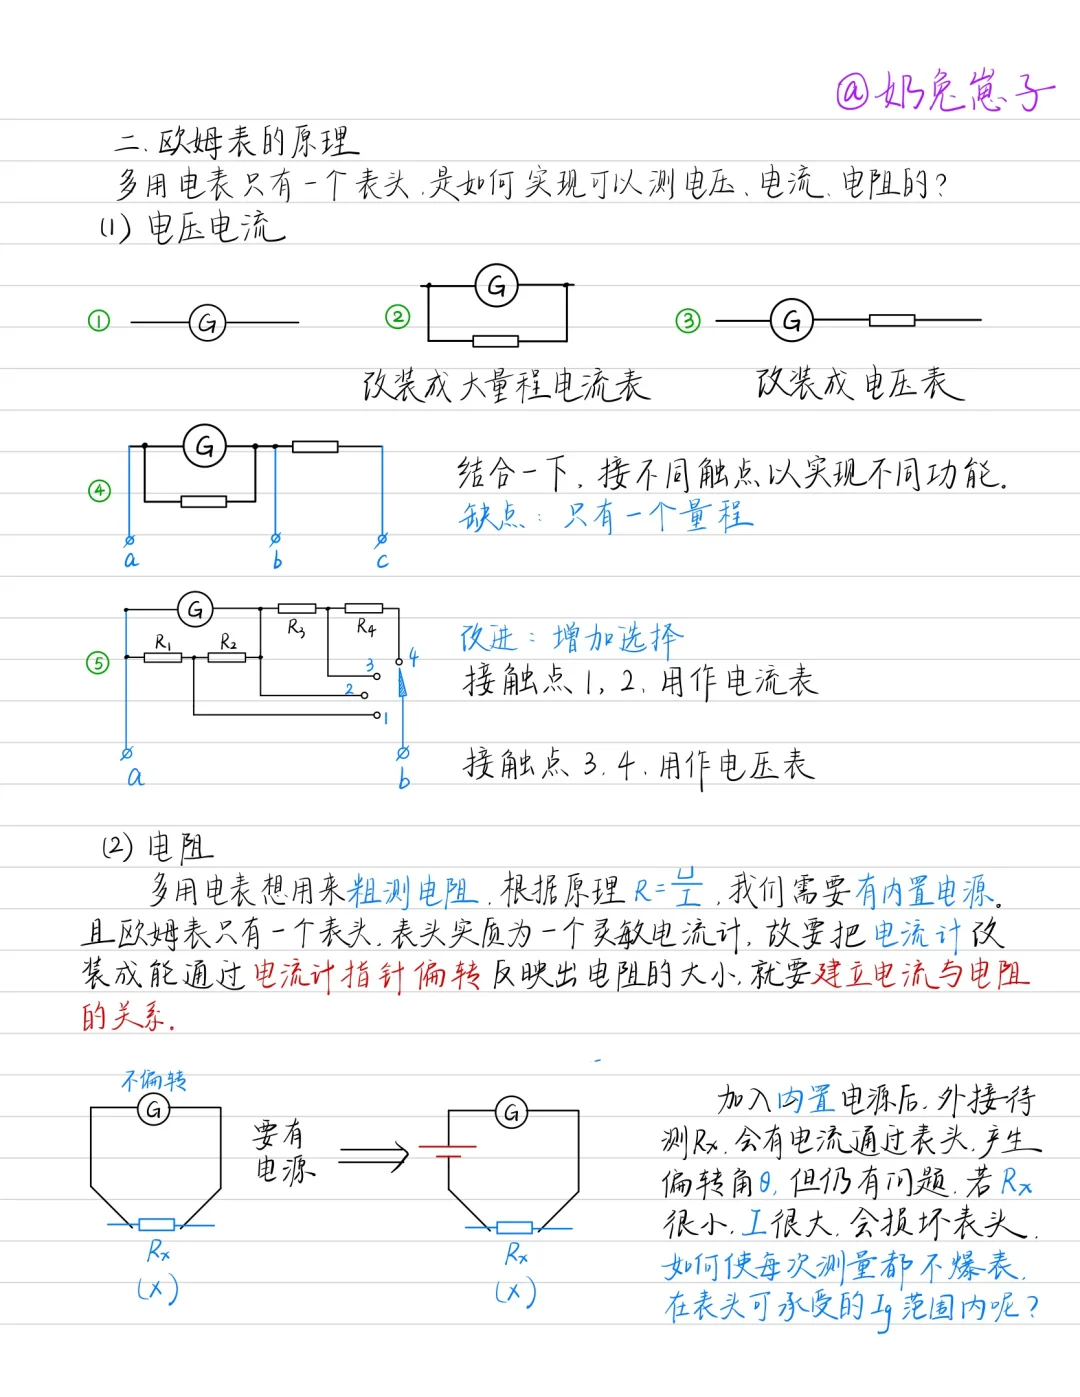 @奶兔崽子
二.欧姆表的原理
多用电表只有一个表头.是如何实现可以测电压、电流、电阻的?
(1) 电压电流
① G
② G
③ G
改装成大量程电流表
改装成电压表
④ G
a b c
结合一下,接不同触点以实现不同功能.
缺点:只有一个量程
⑤ G
R₁ R₂ R₃ R₄
1 2 3 4
a b
改进:增加选择
接触点1,2.用作电流表
接触点3.4.用作电压表
(2) 电阻
多用电表想用来粗测电阻.根据原理R=U/I,我们需要有内置电源。
且欧姆表只有一个表头.表头实质为一个灵敏电流计,故要把电流计改
装成能通过电流计指针偏转反映出电阻的大小.就要建立电流与电阻
的关系.
不偏转
G
Rx
(x)
要有
电源
G
Rx
(x)
加入内置电源后.外接待
测Rx.会有电流通过表头.产生
偏转角θ.但仍有问题.若Rx
很小.I很大.会损坏表头.
如何使每次测量都不爆表.
在表头可承受的Ig范围内呢?